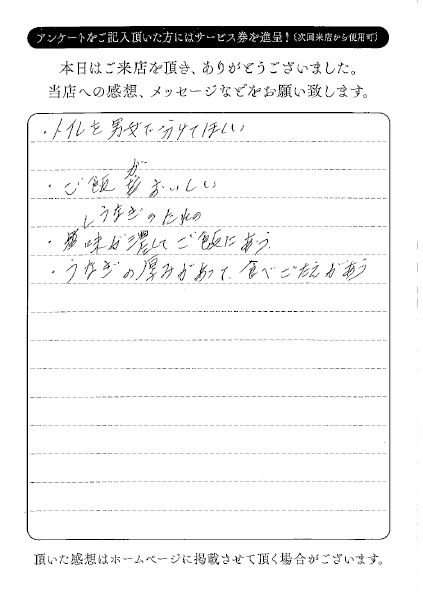 アンケートをご記入頂いた方にはサービス券を進呈！（次回来店から使用可）
本日はご来店を頂き、ありがとうございました。
当店への感想、メッセージなどをお願い致します。
・トイレを男女で分けてほしい
・ご飯がおいしい
うなぎのたれの
・味が濃くてご飯にあう
・うなぎの厚みがあって、食べごたえがあう
頂いた感想はホームページに掲載させて頂く場合がございます。